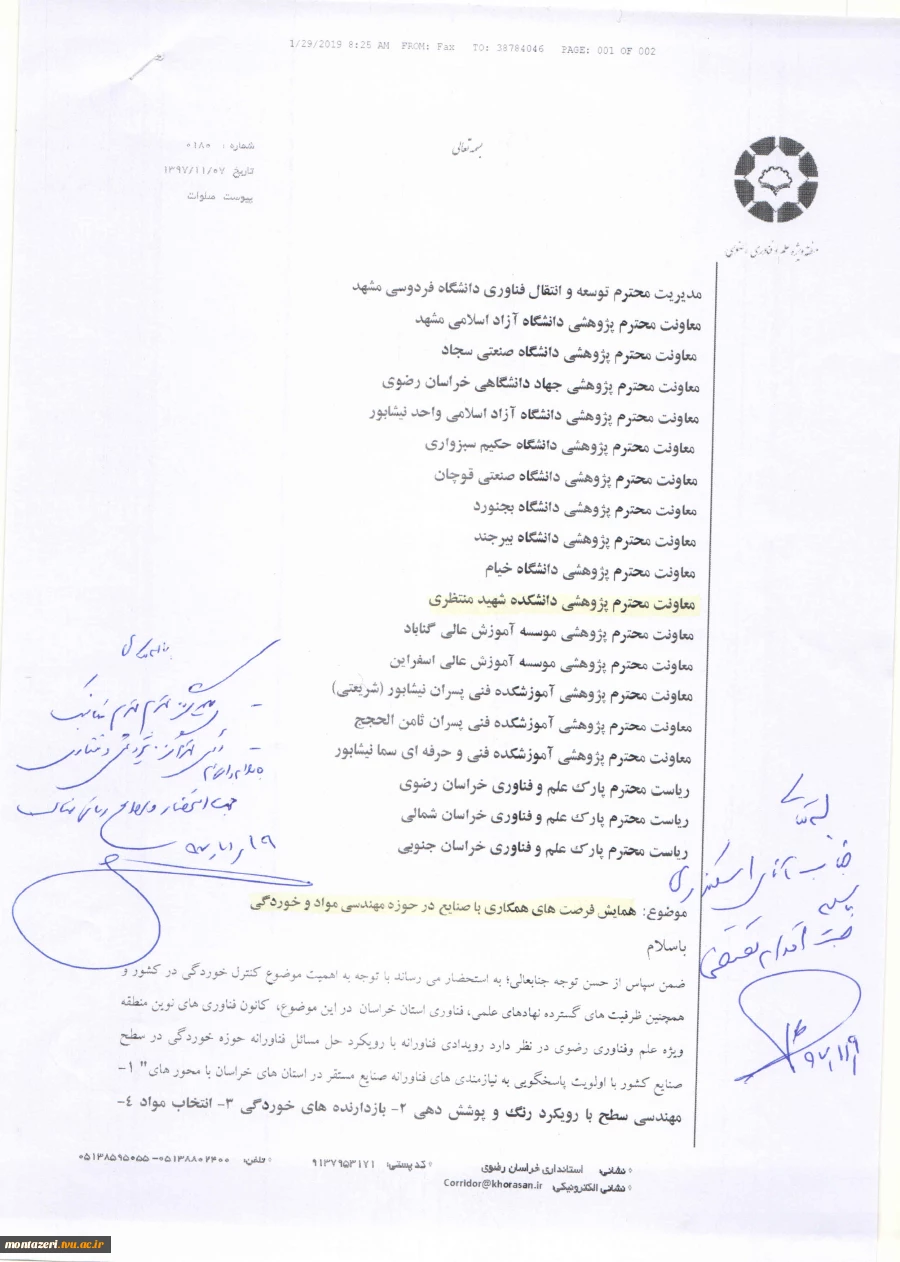 1/29/2019 8:25 AM FROM: Fax TO: 38784046 PAGE: 001 OF 002
بسمه تعالی
شماره : ٠١٨٠
تاریخ ١٣٩٧/١١/٠٧
پیوست
منطقه ویژه علم و فناوری رضوی
مدیریت محترم توسعه و انتقال فناوری دانشگاه فردوسی مشهد
معاونت محترم پژوهشی دانشگاه آزاد اسلامی مشهد
معاونت محترم پژوهشی دانشگاه صنعتی سجاد
معاونت محترم پژوهشی جهاد دانشگاهی خراسان رضوی
معاونت محترم پژوهشی دانشگاه آزاد اسلامی واحد نیشابور
معاونت محترم پژوهشی دانشگاه حکیم سبزواری
معاونت محترم پژوهشی دانشگاه صنعتی قوچان
معاونت محترم پژوهشی دانشگاه بجنورد
معاونت محترم پژوهشی دانشگاه بیرجند
معاونت محترم پژوهشی دانشگاه خیام
معاونت محترم پژوهشی دانشکده شهید منتظری
معاونت محترم پژوهشی موسسه آموزش عالی گناباد
معاونت محترم پژوهشی موسسه آموزش عالی اسفراین
معاونت محترم پژوهشی آموزشکده فنی پسران نیشابور (شریعتی)
معاونت محترم پژوهشی آموزشکده فنی پسران ثامن الحجج
معاونت محترم پژوهشی آموزشکده فنی و حرفه ای سما نیشابور
ریاست محترم پارک علم و فناوری خراسان رضوی
ریاست محترم پارک علم و فناوری خراسان شمالی
ریاست محترم پارک علم و فناوری خراسان جنوبی
موضوع: همایش فرصت های همکاری با صنایع در حوزه مهندسی مواد و خوردگی
باسلام
ضمن سپاس از حسن توجه جنابعالی؛ به استحضار می رساند با توجه به اهمیت موضوع کنترل خوردگی در کشور و
همچنین ظرفیت های گسترده نهادهای علمی، فناوری استان خراسان در این موضوع، کانون فناوری های نوین منطقه
ویژه علم وفناوری رضوی در نظر دارد رویدادی فناورانه با رویکرد حل مسائل فناورانه حوزه خوردگی در سطح
صنایع کشور با اولویت پاسخگویی به نیازمندی های فناورانه صنایع مستقر در استان های خراسان با محور های" ١-
مهندسی سطح با رویکرد رنگ و پوشش دهی ٢- بازدارنده های خوردگی ٣- انتخاب مواد ٤-
جناب آقای اسکندری
جهت اقدام مقتضی
٩٧/١١/٩
نشانی: استانداری خراسان رضوی کدپستی: ٩١٣٧٩٥٣١٧١ تلفن: ٠٥١٣٨٨٠٢٤٠٠-٠٥١٣٨٥٩٥٠٥٥
نشانی الکترونیکی: Corridor@khorasan.ir
montazeri.tvu.ac.ir